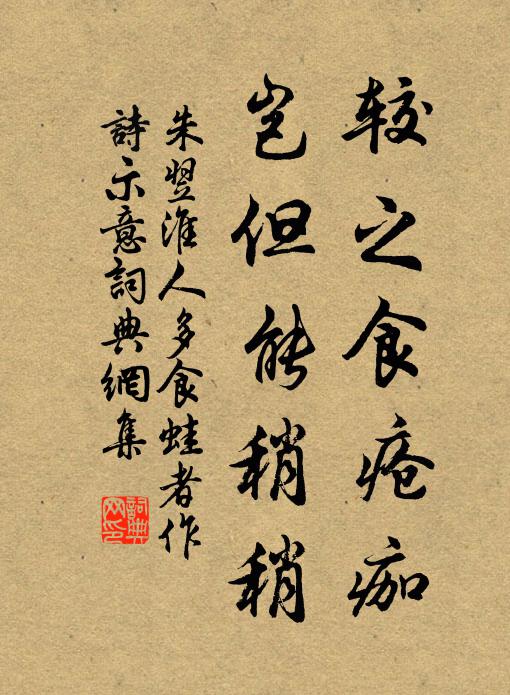 较之食疮痂
岂但能稍稍
朱翌淮人多食蛙者作
詩示意詞典網集
詞典
网印